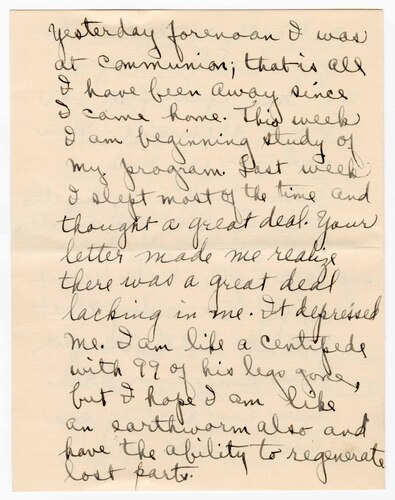 Yesterday forenoon I was
at communion; that is all
I have been away since
I came home. This week
I am beginning study of
my program. Last week
I slept most of the time and
thought a great deal. Your
letter made me realize
there was a great deal
lacking in me. It depressed
me. I am like a centipede
with 99 of his legs gone,
but I hope I am like
an earthworm also and
have the ability to regenerate
lost parts.